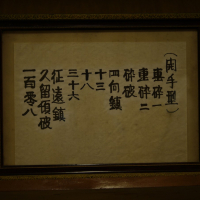 (開手型)
撃砕一
撃砕二
砕破
四向鎮
十三
十八
三十六
征遠鎮
久留頓破
一百零八